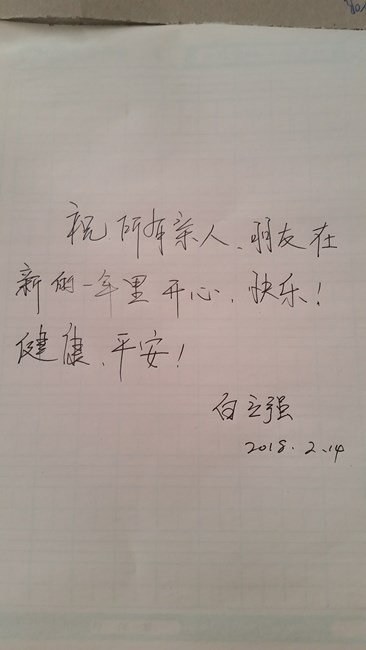 祝所有亲人、朋友在
新的一年里开心、快乐！
健康、平安！
白立强
2018.2.14